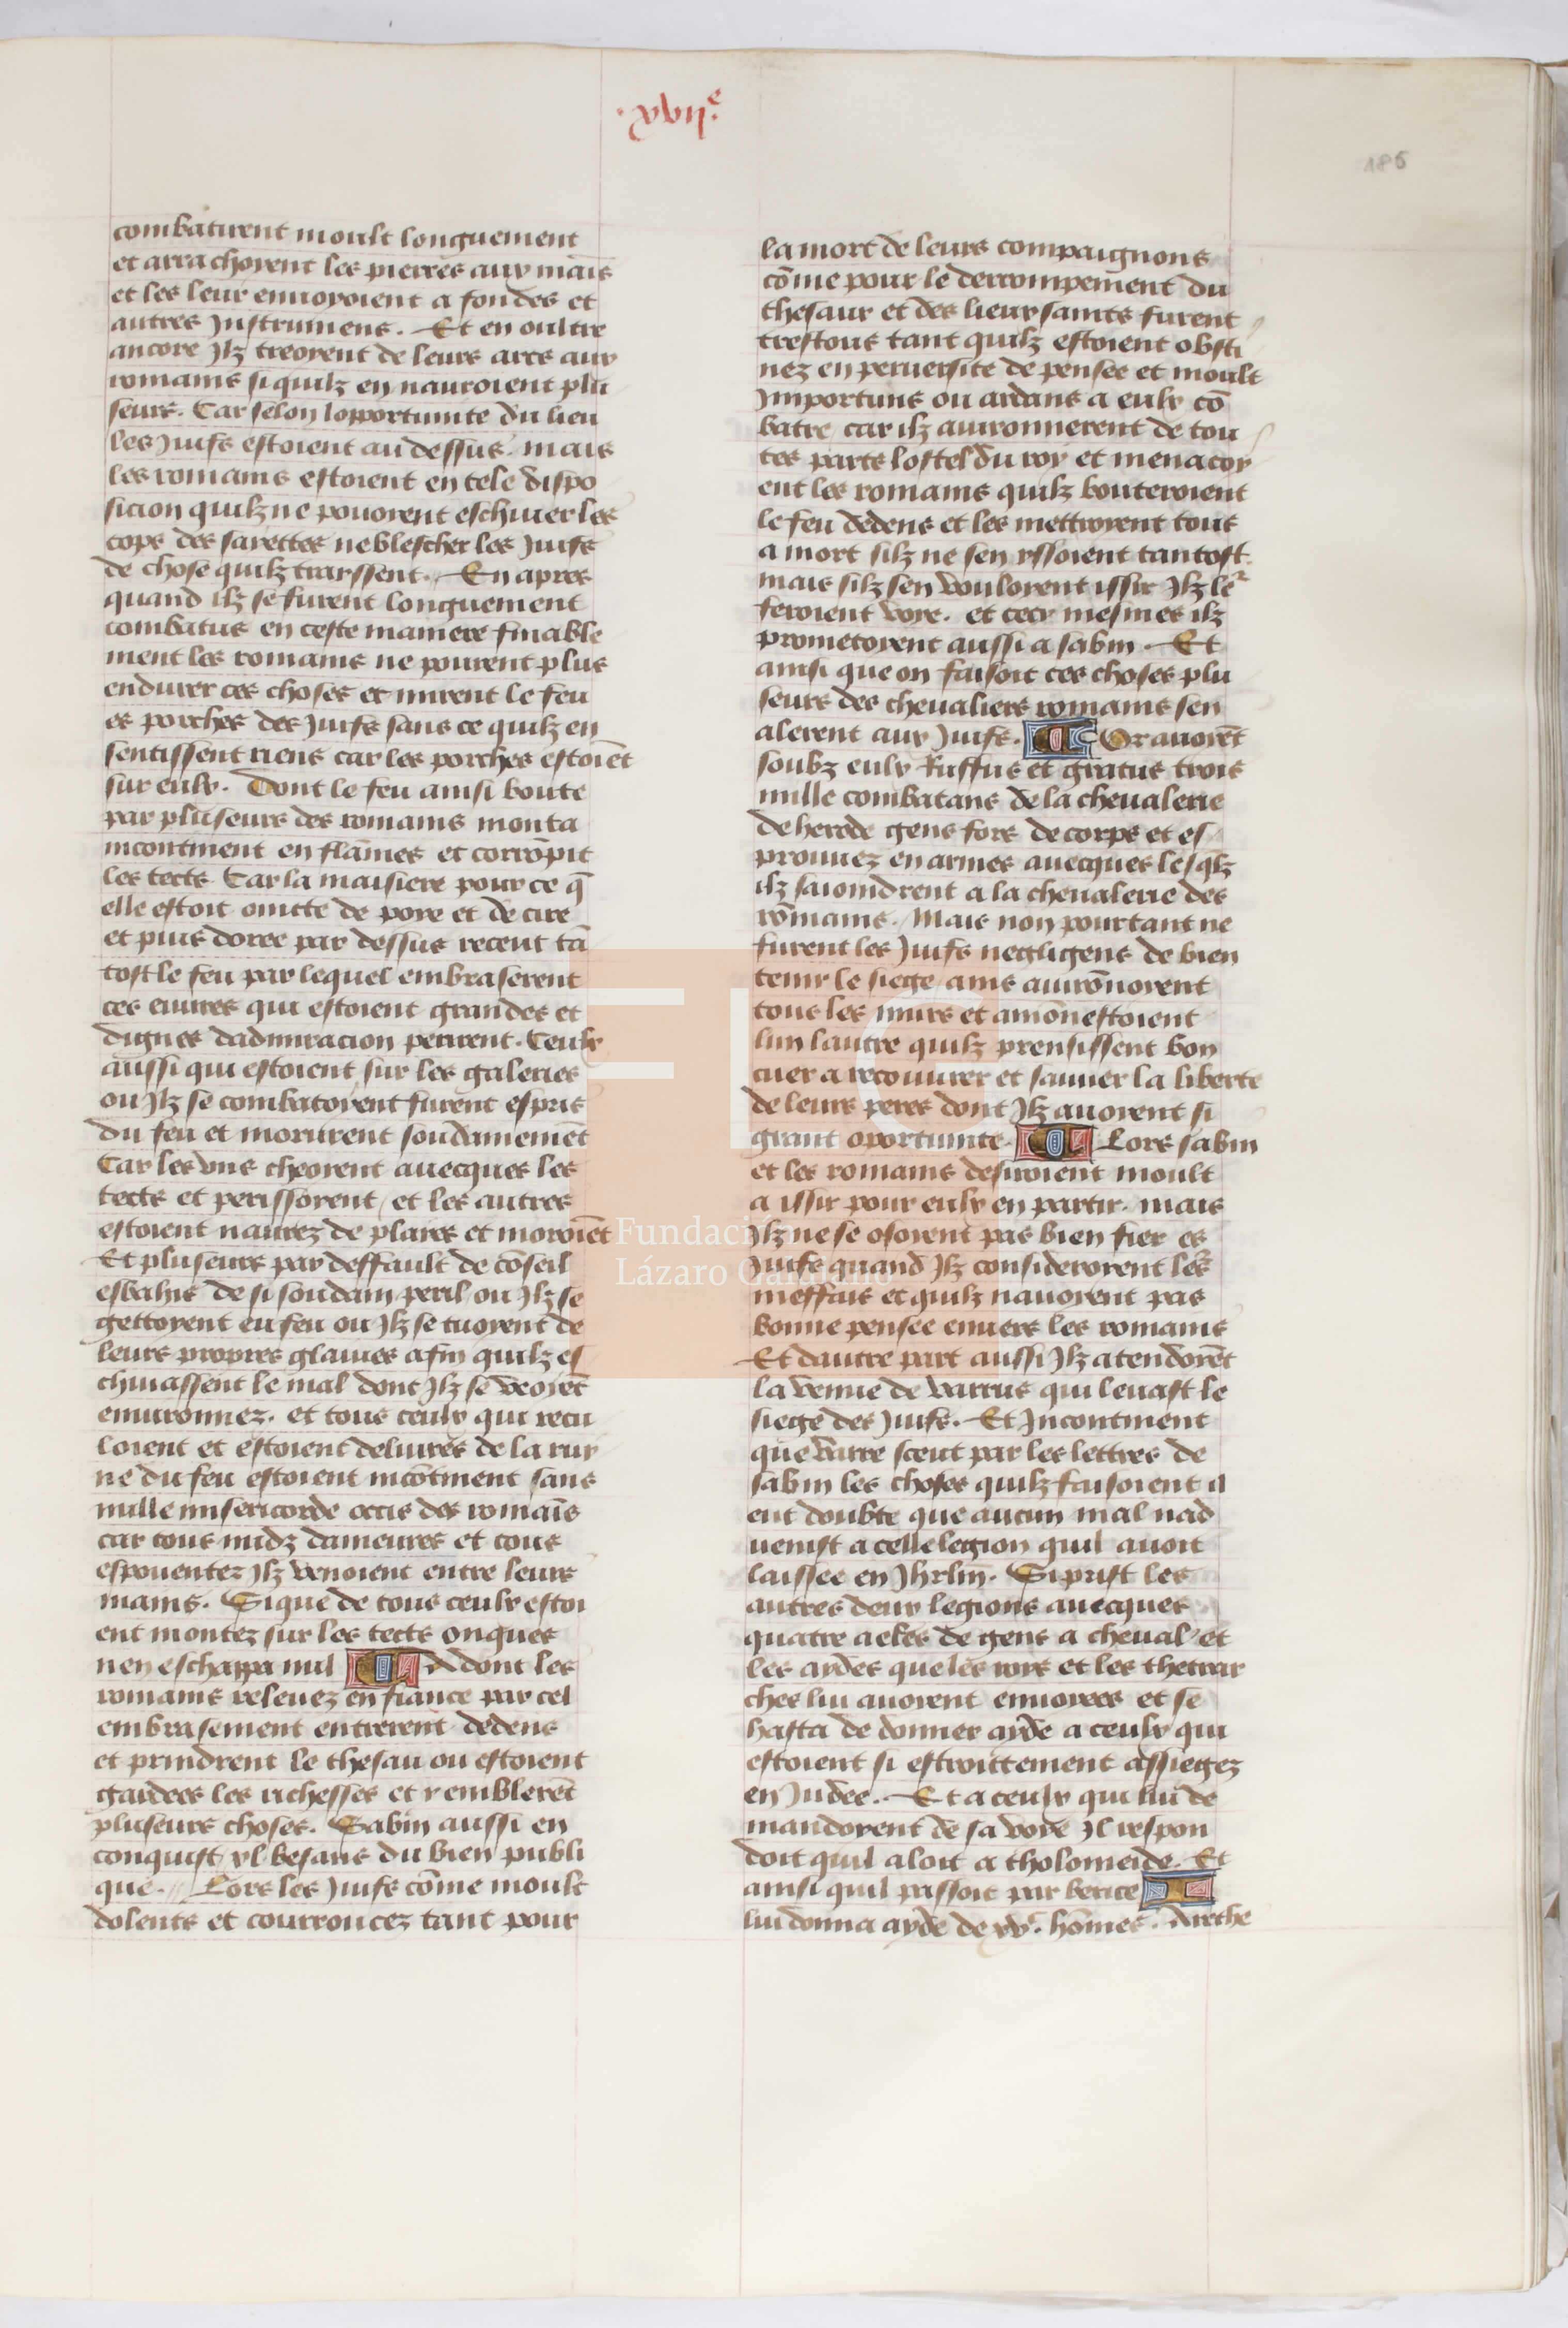 .xvii.e
185
combatirent moult longuement
et arrachoyent les pierres aux mais̄
et les leur enuoyoient a fondes et
autres Instrumens. Et en oultre
ancore Jlz treoyent de leurs arcs aux
romains si quilz en nauroient plu
seurs. Car selon lopportunite du lieu
les Juifs estoient au dessus. mais
les romains estoient en tele dispo
sicion quilz ne pouoyent eschiuer les
cops des sayettes ne blescher les Juifs
de chose quilz traissent. En apres
quand ilz se furent longuement
combatus en ceste maniere finable
ment les romains ne pourent plus
endurer ces choses et mirent le feu
es porches des Juifs sans ce quilz en
sentissent riens car les porches estoiēt
sur eulx. Dont le feu ainsi boute
par pluseurs des romains monta
incontinent en flāmes et corrōpit
les tects Car la maisiere pour ce q̄
elle estoit ointte de poye et de cire
et puis doree par dessus recent tā
tost le feu par lequel embraserent
ces euures qui estoient grandes et
dignes dadmiracion perirent. Ceulx
aussi qui estoient sur les galeries
ou Jlz se combatoyent furent espris
du feu et morurent soudainemēt
Car les vns cheoyent auecques les
tects et perissoyent, et les autres
estoient naurez de plaies et moroiēt
Et pluseurs par deffault de cōseil
esbahis de si soudain peril ou Jlz se
gettoyent eu feu ou Jlz se tuoyent de
leurs propres glaiues afin quilz es
chiuassent le mal dont Jlz se veoiēt
enuironnez. et tous ceulx qui recu
loient et estoient deliures de la ruy
ne du feu estoient incōtinent sans
nulle misericorde occis des romaīs
car tous nudz dameures et tous
espouentez Jlz venoient entre leurs
mains. Si que de tous ceulx estoi
ent montez sur les tects onques
nen eschappa nul A dont les
romains releuez en fiance par cel
embrasement entrerent dedens
et prindrent le thesau ou estoient
gardees les richesses et y emblerēt
pluseurs choses. Sabin aussi en
conquist xl besans du bien publi
que. Lors les Juifs cōme moult
dolents et courroucez tant pour
la mort de leurs compaignons
cōme pour le derrompement du
thesaur et des lieux saints furent
trestous tant quilz estoient obsti
nez en peruersite de pensee et moult
Jmportuns ou ardans a eulx cō
batre, car ilz auironnerent de tou
tes parts lostel du roy et menacoy
ent les romains quilz bouteroient
le feu dedens et les mettroyent tous
a mort silz ne sen yssoient tantost.
mais silz sen vouloyent issir Jlz ler
feroient voye. et cecy mesmes ilz
prometoyent aussi a sabin. Et
ainsi que on faisoit ces choses plu
seurs des cheualiers romains sen
alerent aux Juifs. Or auoyēt
soubz eulx Ruffus et gratus trois
mille combatans de la cheualerie
de herode gens fors de corps et es
prouuez en armes auecques lesq̄lz
ilz saioindrent a la cheualerie des
rōmains. Mais non pourtant ne
furent les Juifs negligens de bien
tenir le siege ains auirōnoyent
tous les murs et amōnestoient
lun lautre quilz prensissent bon
cuer a recouurer et sauuer la liberte
de leurs peres dont Jlz auoyent si
grant oportunite. Lors sabin
et les romains desiroient moult
a issir pour eulx en partir. mais
Jlz ne se osoient pas bien fier es
Juifs quand Jlz consideroyent lers
meffais et quilz nauoyent pas
bonne pensee enuers les romains
Et dautre part aussi Jlz atendoyēt
la venue de varrus qui leuast le
siege des Juifs. Et Jncontinent
que varre sceut par les lettres de
sabin les choses quilz faisoient il
eut doubte que aucun mal nad
uenist a celle legion quil auoit
laissee en Jhrlm̄. Si prist les
autres deux legions auecques
quatre aeles de gens a cheual et
les aydes que les roys et les thetrar
ches lui auoyent enuoyees et se
hasta de donner ayde a ceulx qui
estoient si estroittement assiegez
en Judee. Et a ceulx qui lui de
mandoyent de sa voye Jl respon
doit quil aloit a tholomeide. Et
ainsi quil passoit par berite
lui donna ayde de xvc. hōmes. Arethe
Fundación
Lázaro Galdiano